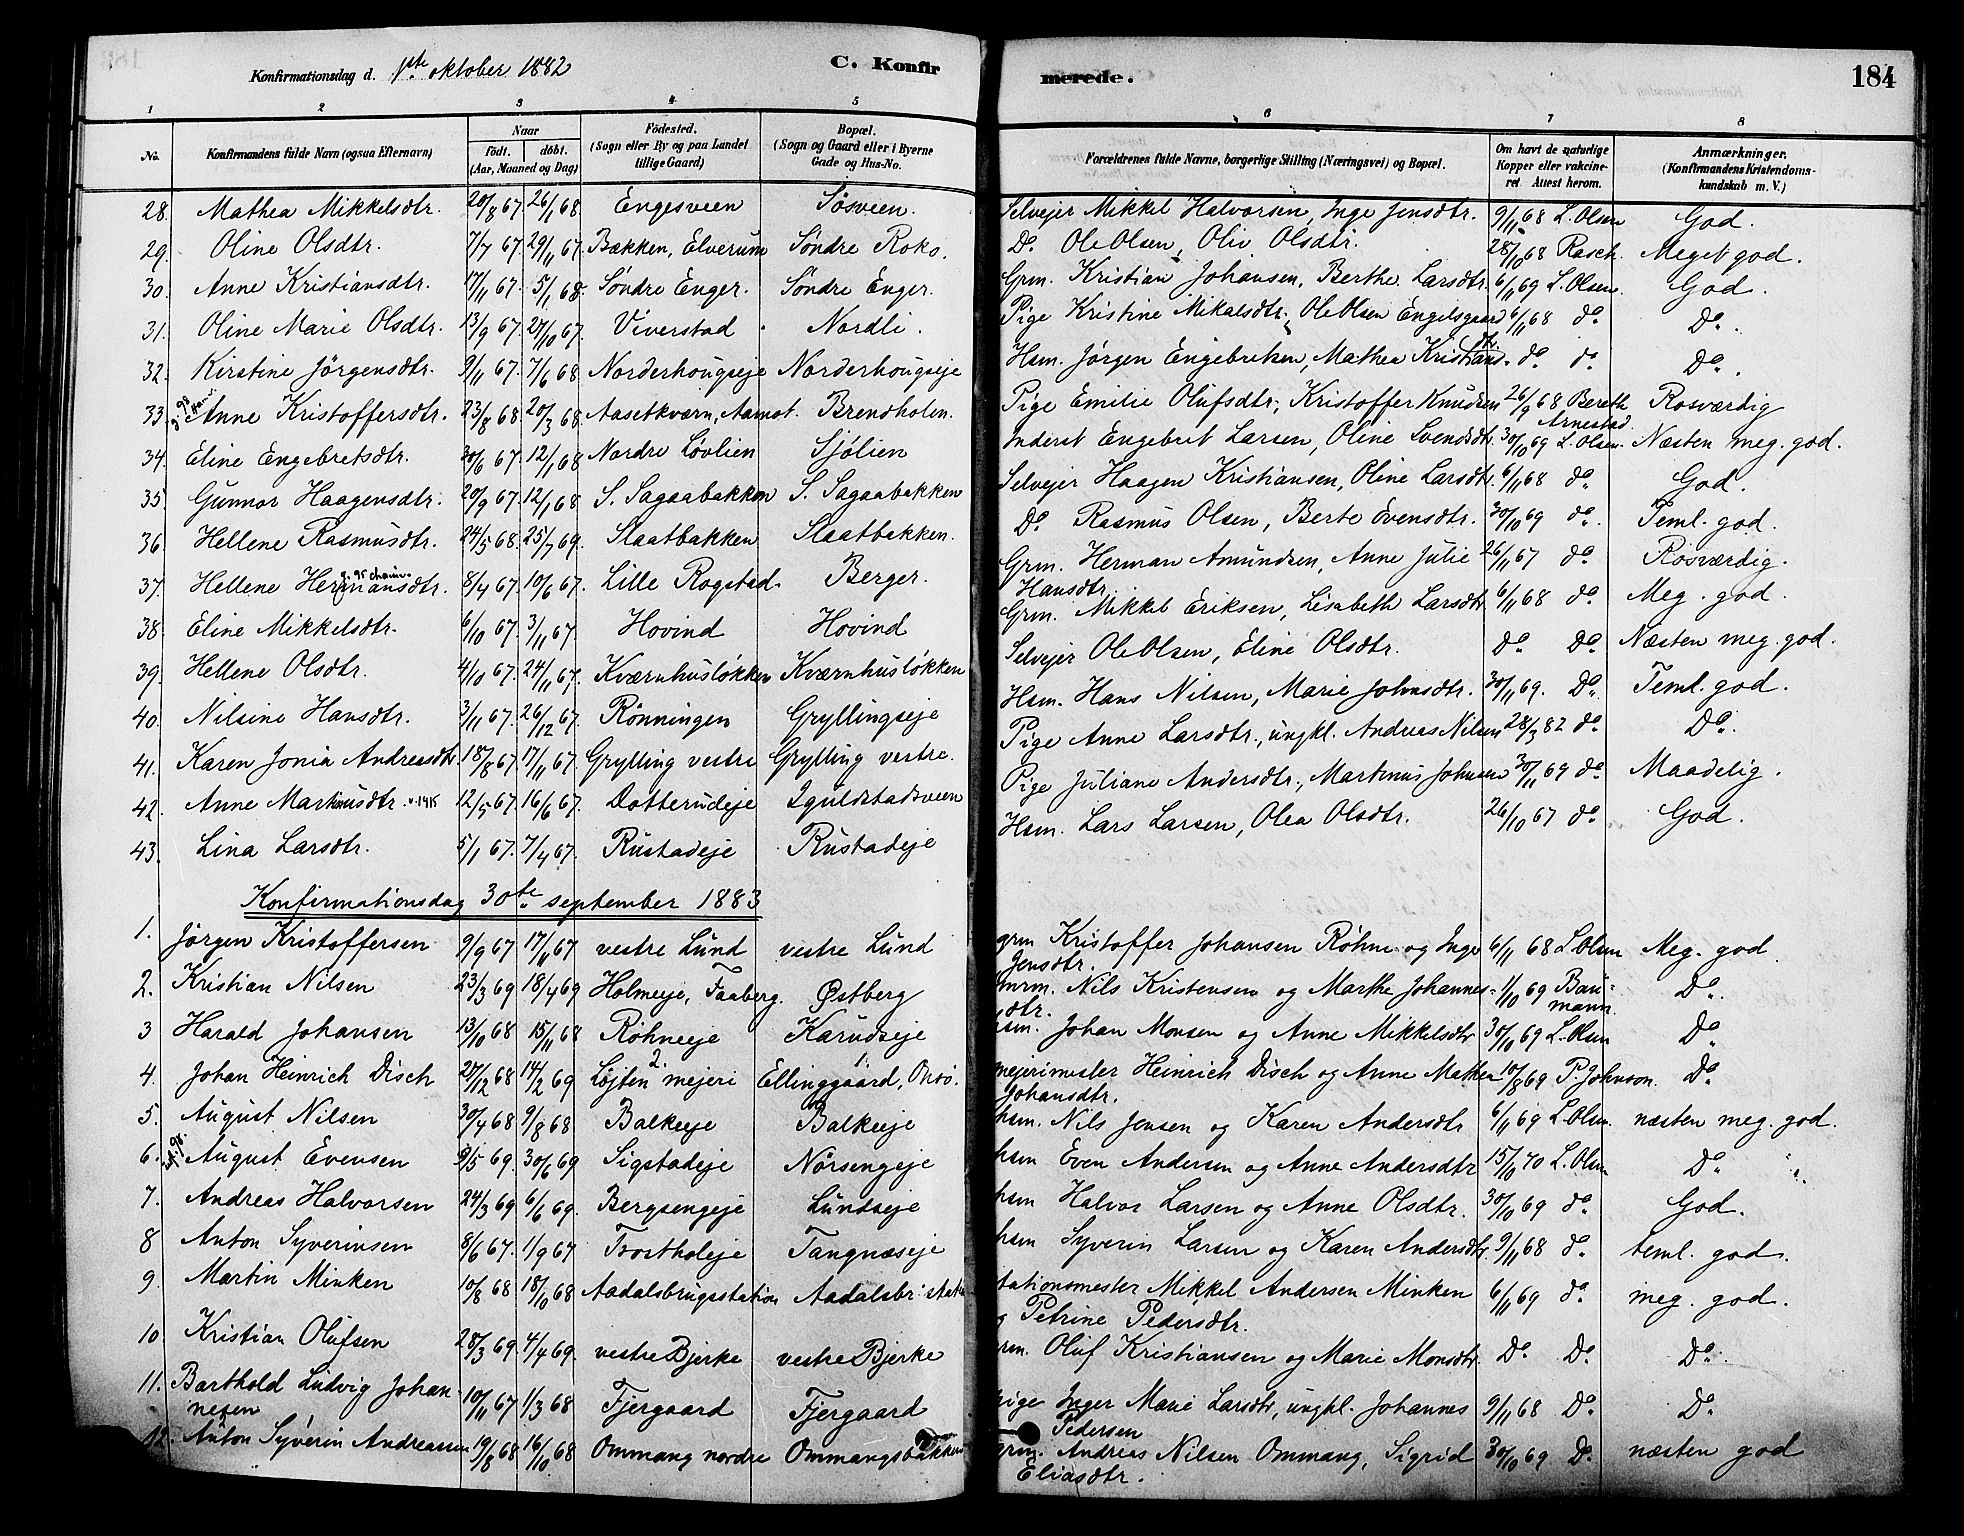 Konfirmationsdag d. 1ste oktober 1882 C. Konfirmerede. 184
1 2 3 4 5 6 7 8
No. Konfirmandens fulde Navn (ogsaa Efternavn) Naar født. døbt. (Aar, Maaned og Dag) Fødested. (Sogn eller By og paa Landet tillige Gaard) Bopæl. (Sogn og Gaard eller i Byerne Gade og Hus-No. Forældrenes fulde Navne, borgerlige Stilling (Næringsvei) og Bopæl. Om havt de naturlige Kopper eller vakcineret. Attest herom. Anmærkninger. (Konfirmandens Kristendomskundskab m. V.)
28. Mathea Mikkelsdtr. 20/8 67. 26/1 68 Engesveen Søsveen. Selvejer Mikkel Halvorsen, Inge Jensdtr. 9/11 68 L. Olsen God.
29. Oline Olsdtr. 7/7 67. 29/11 67. Bækken, Elverum Søndre Roko. Do. Ole Olsen, Oliv Olsdtr. 28/10 68 Rasch. Meget god.
30. Anne Kristiansdtr. 17/11 67. 5/1 68. Søndre Enger. Søndre Enger. Grm. Kristian Johansen, Berthe Larsdtr. 6/11 69 L. Olsen. God.
31. Oline Marie Olsdtr. 13/9 67. 27/10 67. Viverstad Nordli. Pige Kristine Mikalsdtr., Ole Olsen Engelsgaard 6/11 68 do. Do.
32. Kirstine Jørgensdtr. 9/11 67. 7/6 68 Norderhougseje Norderhougseje Hsm. Jørgen Engebretsen, Mathea Kristiansdtr. do. do. Do.
33. Anne Kristoffersdtr. 23/8 68. 20/3 68. Aasetkværn, Aamot. Brendholen. Pige Emilie Olufsdtr., Kristoffer Knudsen 26/9 68 Bereth Arnestad Rosværdig
34. Eline Engebretsdtr. 30/6 67. 12/1 68 Nordre Løvlien Sjølien Inderst Engebret Larsen, Oline Svendsdtr. 30/10 69 L. Olsen. Næsten meg. god.
35. Gunnor Haagensdtr. 20/9 67. 12/1 68 S. Sagaabakken S. Sagaabakken Selvejer Haagen Kristiansen, Oline Larsdtr. 6/11 68 do. God.
36. Hellene Rasmusdtr. 24/5 68. 25/7 69. Slaatbakken Slaatbakken. Do. Rasmus Olsen, Berte Evensdtr. 30/10 69 do. Teml. god.
37. Hellene Hermansdtr. 8/4 67. 10/6 67. Lille Rogstad. Berger. Grm. Herman Amundsen, Anne Julie Hansdtr. 26/11 67 do. Rosværdig.
38. Eline Mikkelsdtr. 6/10 67. 3/11 67. Hovind Hovind Grm. Mikkel Eriksen, Lisabeth Larsdtr. 6/11 68 do. Meg. god.
39. Hellene Olsdtr. 4/10 67. 24/11 67. Kværnhusløkken Kværnhusløkken Selvejer Ole Olsen, Eline Olsdtr. Do. Do. Næsten meg. god.
40. Nilsine Hansdtr. 3/11 67. 26/12 67. Rønningen Gryllingseje Hsm. Hans Nilsen, Marie Johnsdtr. 30/11 69. Do. Teml. god.
41. Karen Jonia Andreasdtr. 18/8 67. 17/11 67. Grylling vestre Grylling vestre. Pige Anne Larsdtr., ungkl. Andreas Nilsen 28/3 82 do. Do.
42. Anne Martinusdtr. 12/5 67. 16/6 67. Dotterudeje Iguldstadsveen Pige Juliane Andersdtr., Martinus Johnsen 30/11 69 do. Maadelig.
43. Lina Larsdtr. 5/1 67. 7/4 67. Rustadeje Rustadeje Hsm. Lars Larsen, Olea Olsdtr. 26/10 67 do. God.
Konfirmationsdag 30te september 1883
1. Jørgen Kristoffersen 9/9 67 17/11 67 vestre Lund vestre Lund grm Kristoffer Johansen Røhne og Inge Jensdtr. 6/11 68 L. Olsen Meg. god
2. Kristian Nilsen 23/3 69 18/4 69 Holmeje, Faaberg. Østberg Grm. Nils Kristensen og Marthe Johannesdtr. 1/10 69 Baumann. Do.
3 Harald Johansen 13/10 68 15/11 68 Røhneeje Karudseje hsm. Johan Monsen og Anne Mikkelsdtr 30/10 69 L. Olsen Do.
4. Johan Heinrich Disch 27/12 68 14/2 69 Løjten mejeri Ellinggaard, Onsø. mejerimester Heinrich Disch og Anne Mathea Johansdtr. 10/8 69 P. Johnson. Do.
5. August Nilsen 30/4 68 9/8 68 Balkeeje Balkeeje hsm. Nils Jensen og Karen Andersdtr 6/11 69 L. Olsen. næsten meg. god.
6. August Evensen 9/5 69. 30/6 69 Sigstadeje Nørsengeje hsm Even Andersen og Anne Andersdtr 15/11 70 L. Olsen Do. "
7. Andreas Halvorsen 24/3 69 6/6 69. Bergsengeje Lundseje hsm Halvor Larsen og Anne Olsdtr. 30/10 69 do. God.
8 Anton Syverinsen 8/6 67. 1/9 67 Tostholeje Tangnæseje hsm Syverin Larsen og Karen Andersdtr. 9/11 68 do. teml. god.
9. Martin Minken 10/8 68 18/10 68 Aadalsbrugsstation Aadalsbr. stati Stationsmester Mikkel Andersen Minken og Petrine Pedersdtr. 6/11 69 do. meg. god.
10. Kristian Olufsen 28/3 69. 4/4 69. vestre Bjerke vestre Bjerke grm. Oluf Kristiansen og Marie Monsdtr. Do. Do. Do.
11. Barthold Ludvig Johannesen 10/11 67 1/3 68 Fjergaard Fjergaard pige Inger Marie Larsdtr, ungkl. Johannes Pedersen 9/11 68 Do. Do.
12. Anton Syverin Andreassen 19/8 68 16/10 68 Ommang nordre Ommangsbakken grm. Andreas Nilsen Ommang, Sigrid Eliasdtr. 30/10 69 Do. næsten god